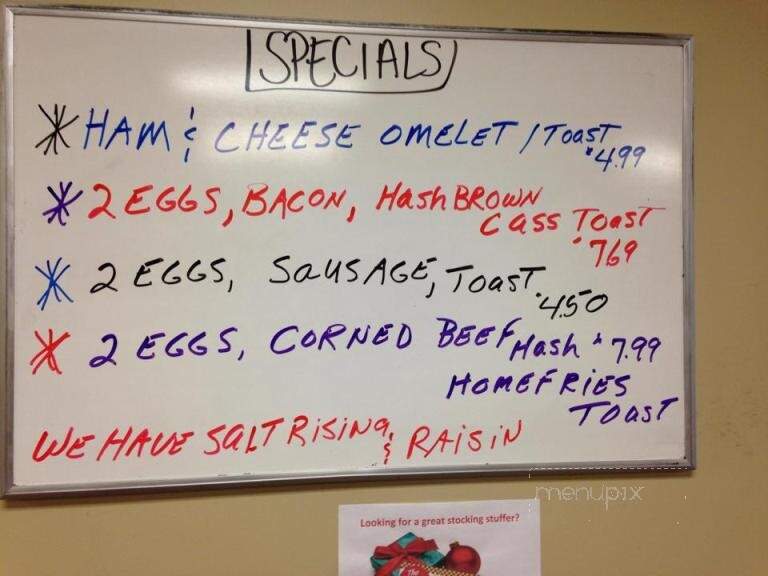 SPECIALS
HAM & CHEESE OMELET / TOAST
$4.99
2 EGGS, BACON, HASH BROWN
CASS TOAST
$7.69
2 EGGS, SAUSAGE, TOAST
$4.50
2 EGGS, CORNED BEEF HASH $7.99
HOMEFRIES
TOAST
WE HAVE SALT RISING & RAISIN
menupix
Looking for a great stocking stuffer?
The